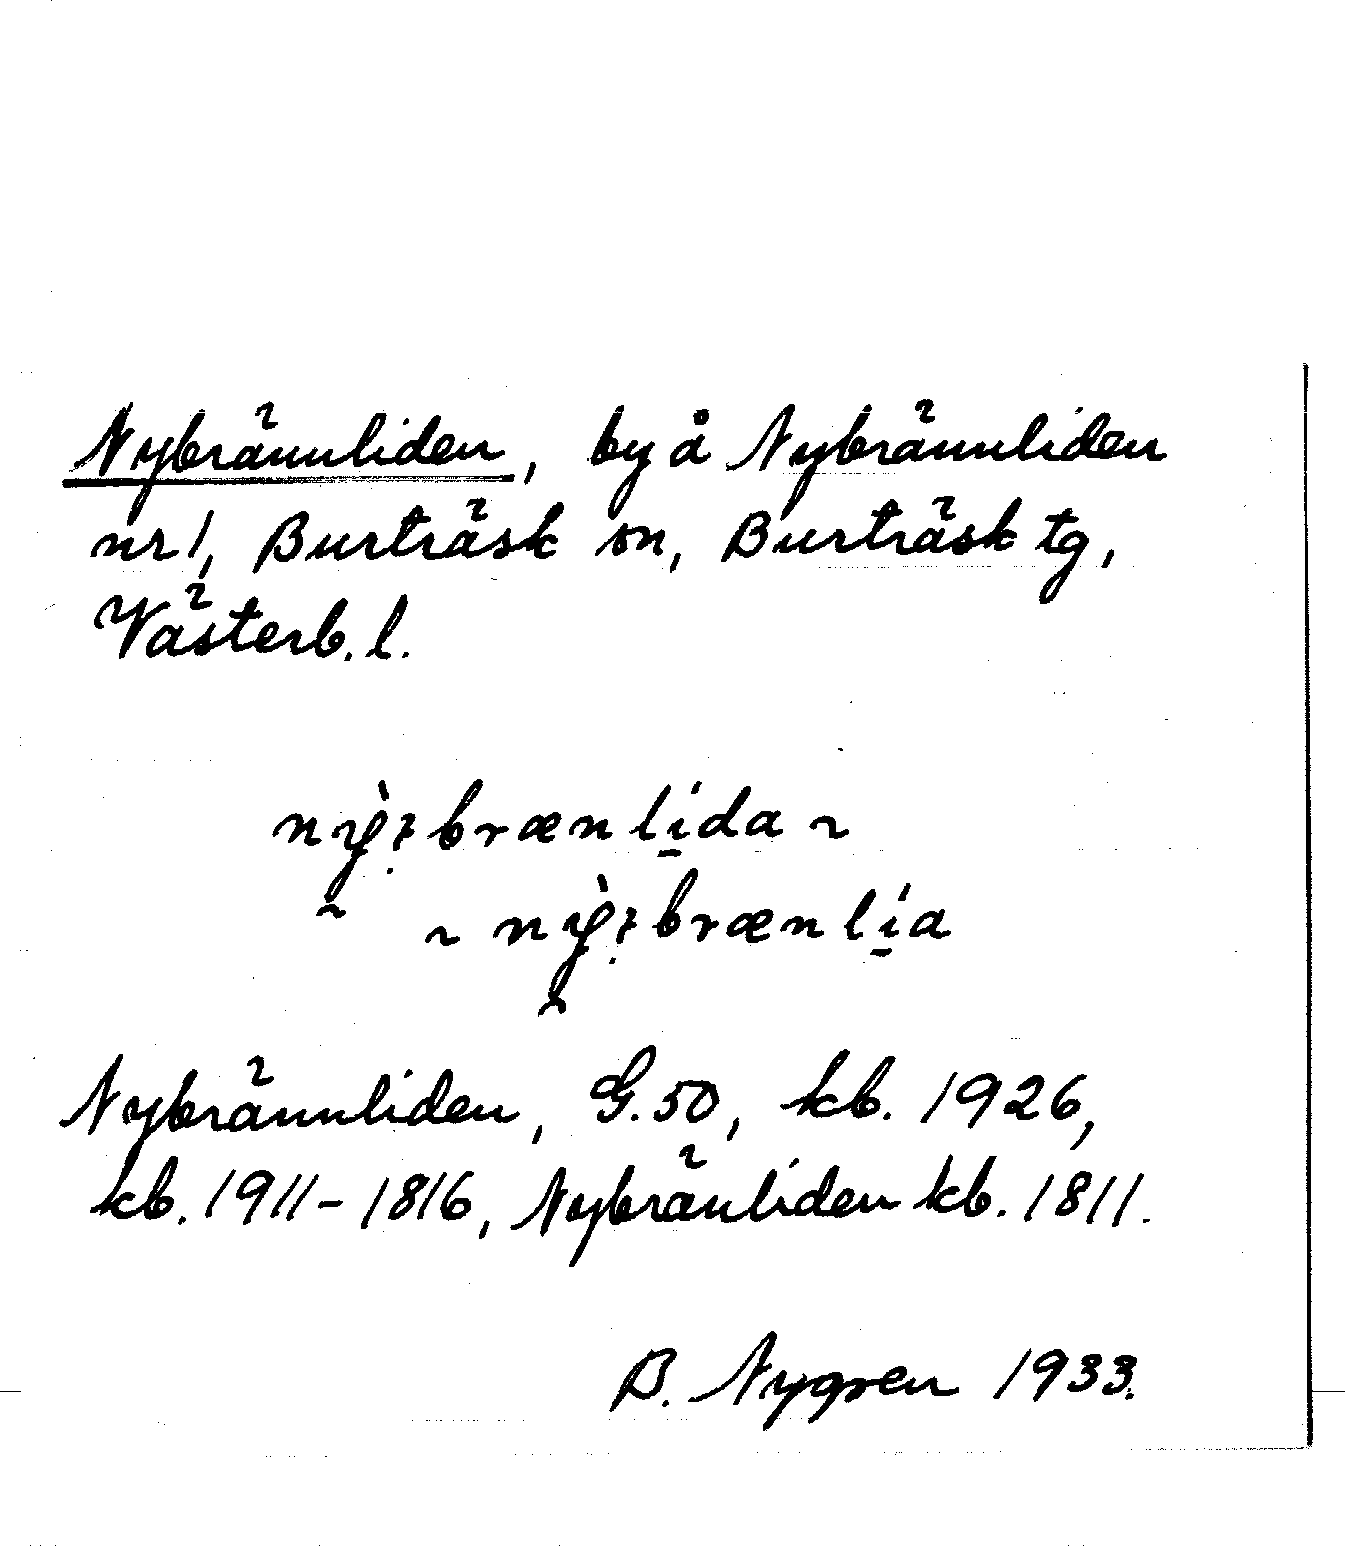 Nybrännliden, by å Nybrännliden
nr 1, Burträsk sn, Burträsk tg,
Västerb. l.
nỳ:brænlí̱da ~
~ nỳ:brænlí̱a
Nybrännliden, G. 50, kb. 1926,
kb. 1911-1816, Nybränliden kb. 1811.
B. Nygren 1933.